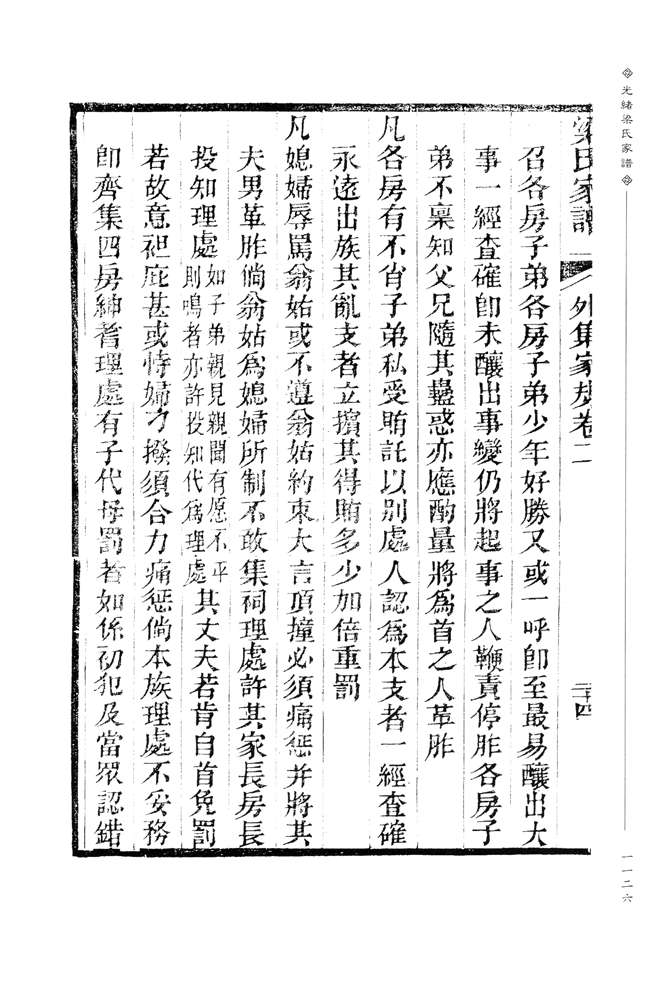 光緒梁氏家譜
一一二六
梁氏家譜 外集家規卷二 三十四
召各房子弟各房子弟少年好勝又或一呼卽至最易釀出大
事一經查確卽未釀出事變仍將起事之人鞭責停胙各房子
弟不稟知父兄隨其蠱惑亦應酌量將爲首之人革胙
凡各房有不肖子弟私受賄託以别處人認爲本支者一經查確
永遠出族其亂支者立擯其得賄多少加倍重罰
凡媳婦辱罵翁姑或不遵翁姑約束大言頂撞必須痛懲并將其
夫男革胙倘翁姑爲媳婦所制不敢集祠理處許其家長房長
投知理處如子弟親見親聞有愿不平則鳴者亦許投知代爲理處其丈夫若肯自首免罰
若故意袒庇甚或恃婦刁撥須合力痛懲倘本族理處不妥務
卽齊集四房紳耆理處有子代母罰者如係初犯及當眾認錯